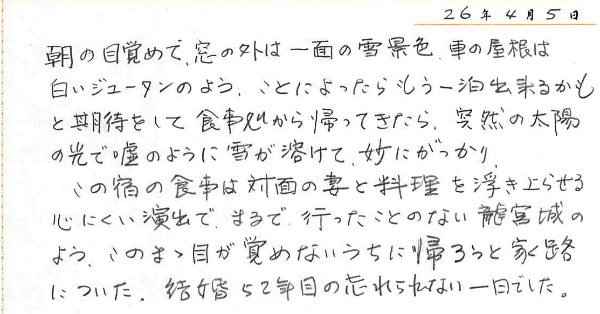 26年4月5日
朝の目覚めで、窓の外は一面の雪景色、車の屋根は
白いジュータンのよう、ことによったらもう一泊出来るかも
と期待をして食事処から帰ってきたら、突然の太陽
の光で嘘のように雪が溶けて、妙にがっかり、
この宿の食事は対面の妻と料理を浮き上らせる
心にくい演出で、まるで、行ったことのない龍宮城の
よう、このまゝ目が覚めないうちに帰ろうと家路
についた。結婚52年目の忘れられない一日でした。